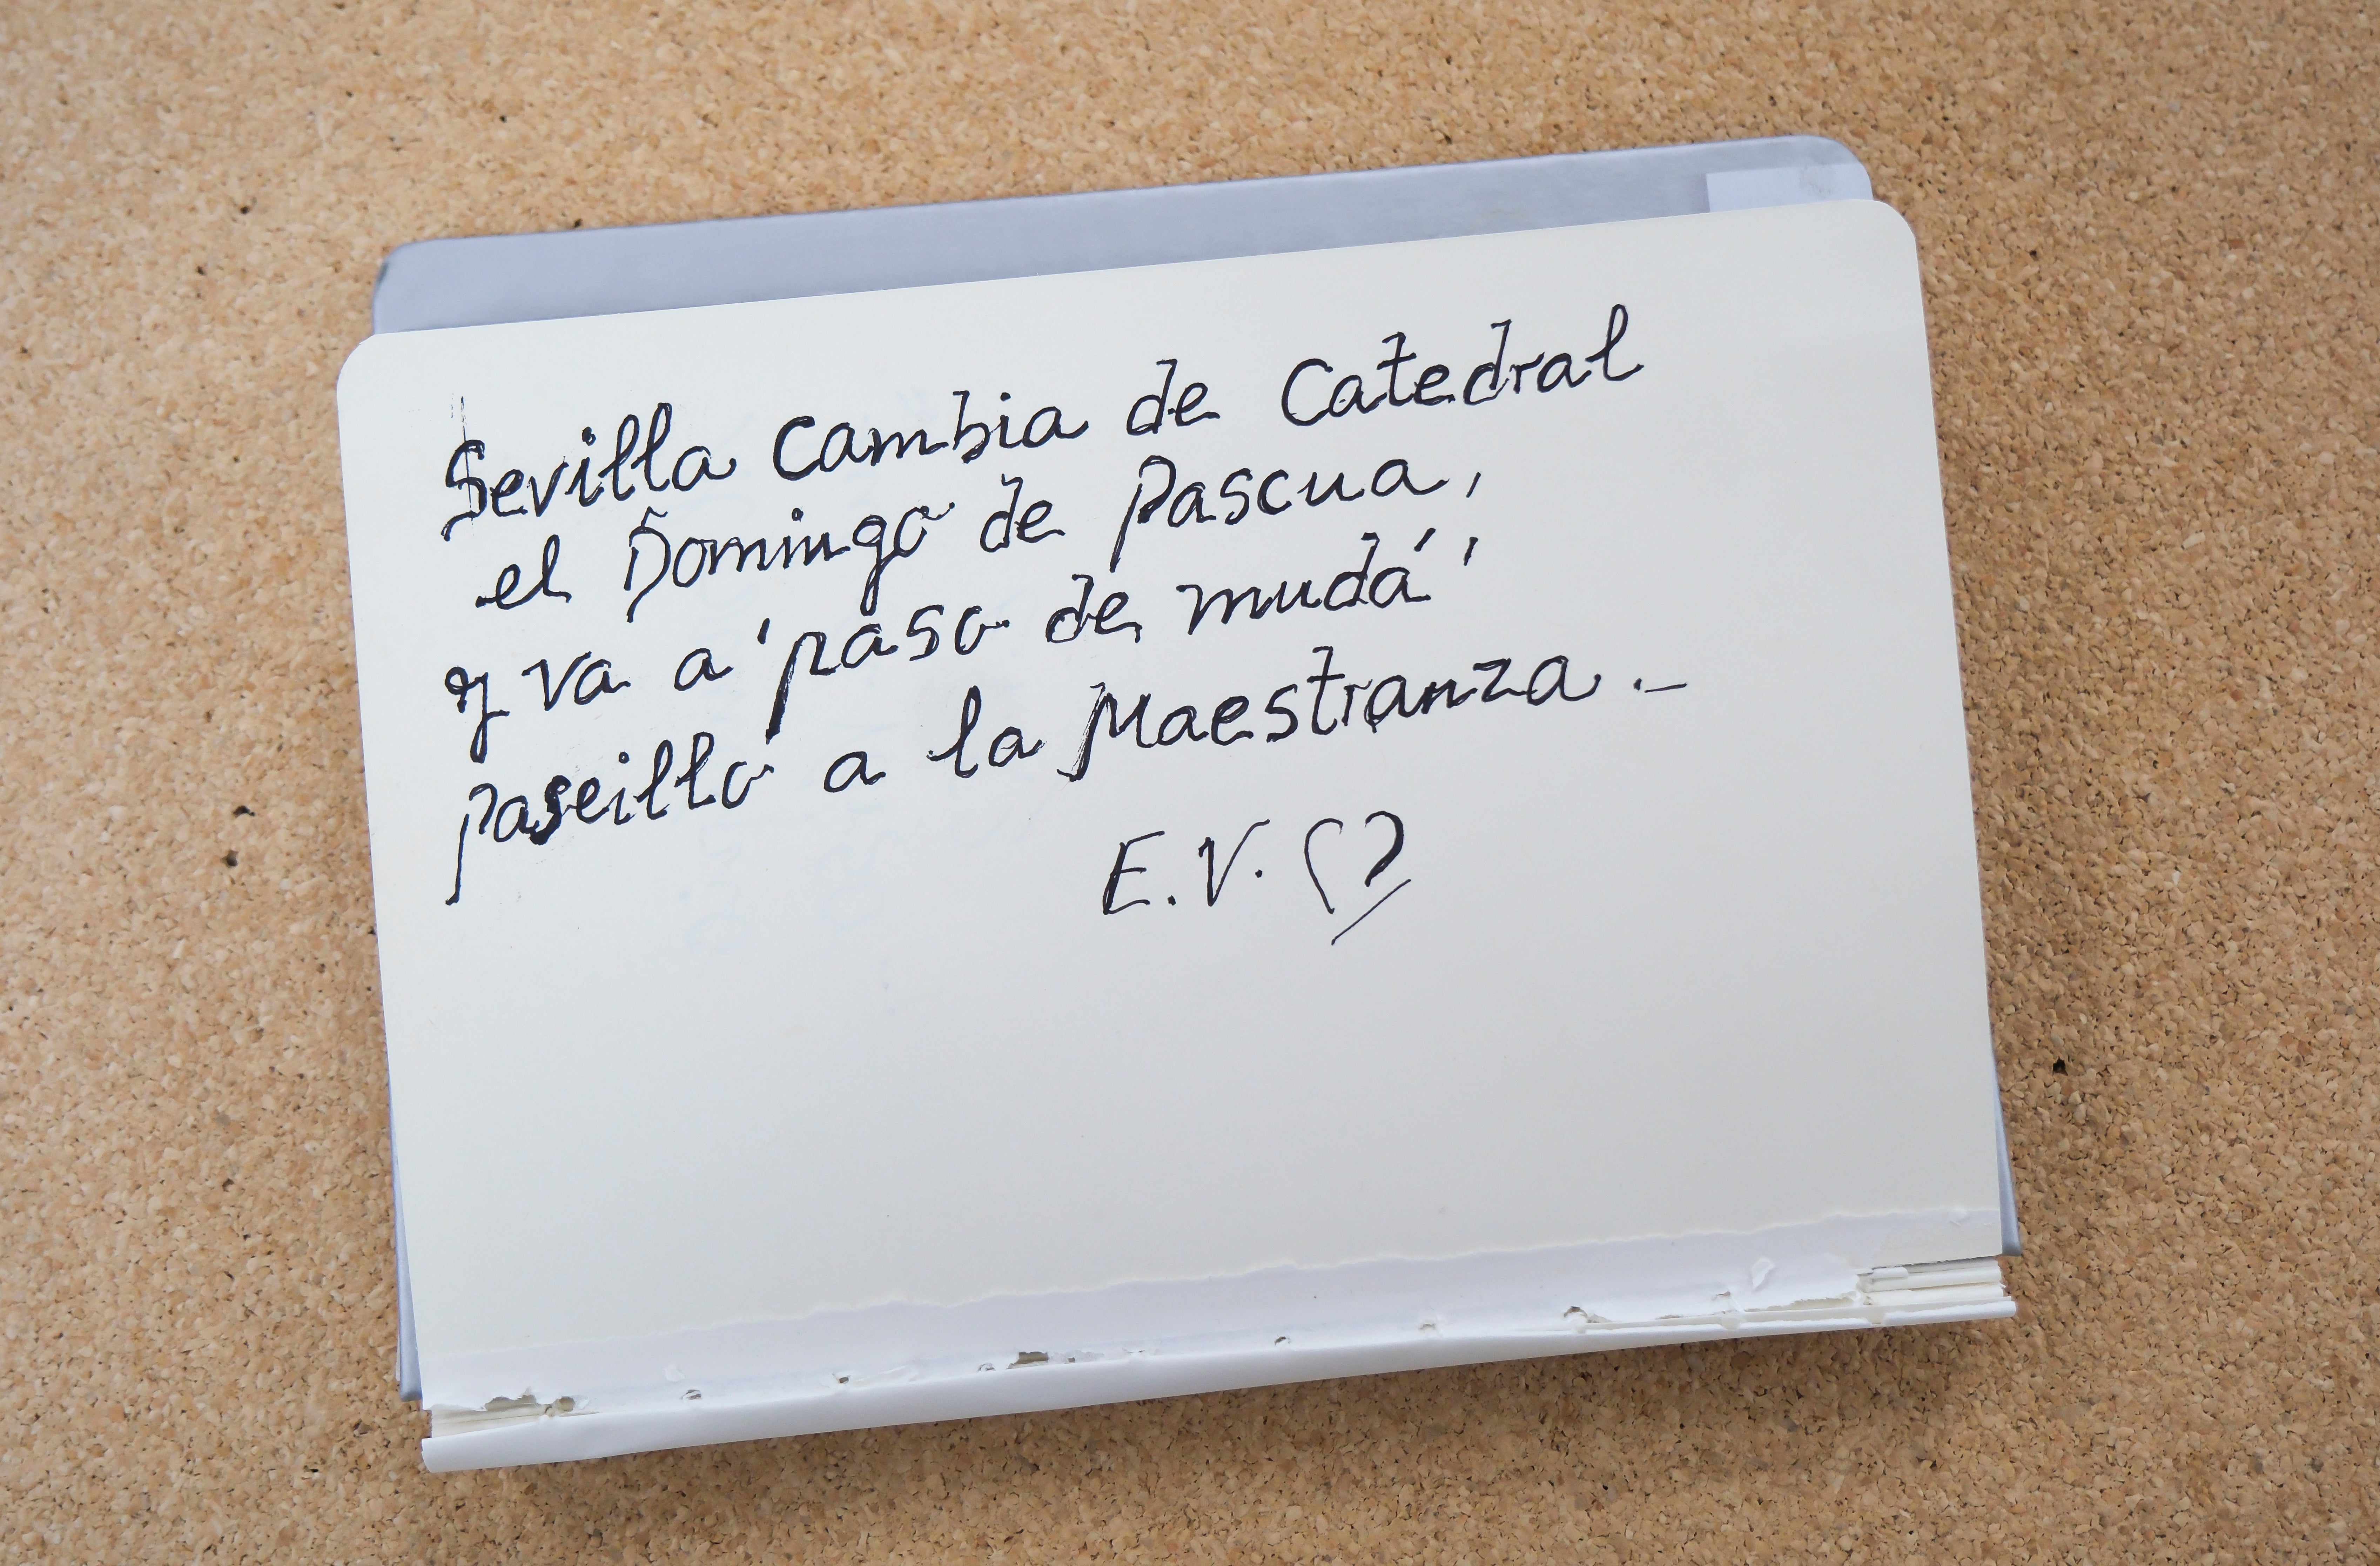 Sevilla Cambia de Catedral
el Domingo de Pascua,
y va a 'paso de mudá',
paseillo a la Maestranza.-
E.V. ♡